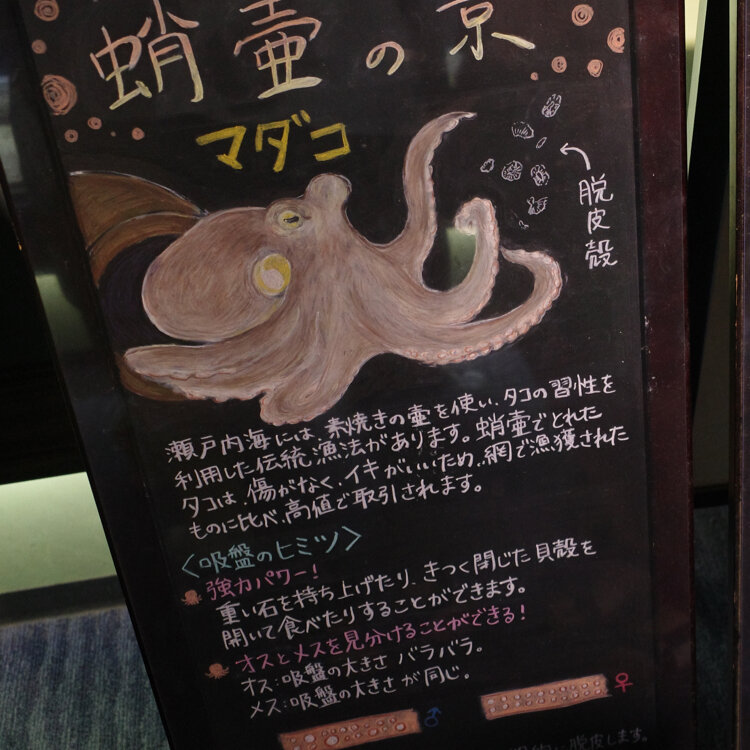 蛸壷の京
マダコ
脱皮殻
瀬戸内海には、素焼きの壷を使い、タコの習性を
利用した伝統漁法があります。蛸壷でとれた
タコは、傷がなく、イキがいいため、網で漁獲された
ものに比べ、高値で取引されます。
<吸盤のヒミツ>
強力パワー!
重い石を持ち上げたり、きつく閉じた貝殻を
開いて食べたりすることができます。
オスとメスを見分けることができる!
オス:吸盤の大きさ バラバラ。
メス:吸盤の大きさが同じ。
♀
♂
脱皮します。